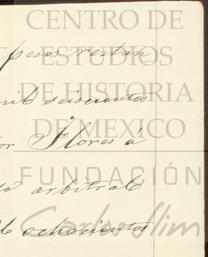 CENTRO DE
ESTUDIOS
pesos restan
DE HISTORIA
mil seiscientos
DE MEXICO
or Flores á
FUNDACIÓN
arbitral
Carlos Slim
ochocientos